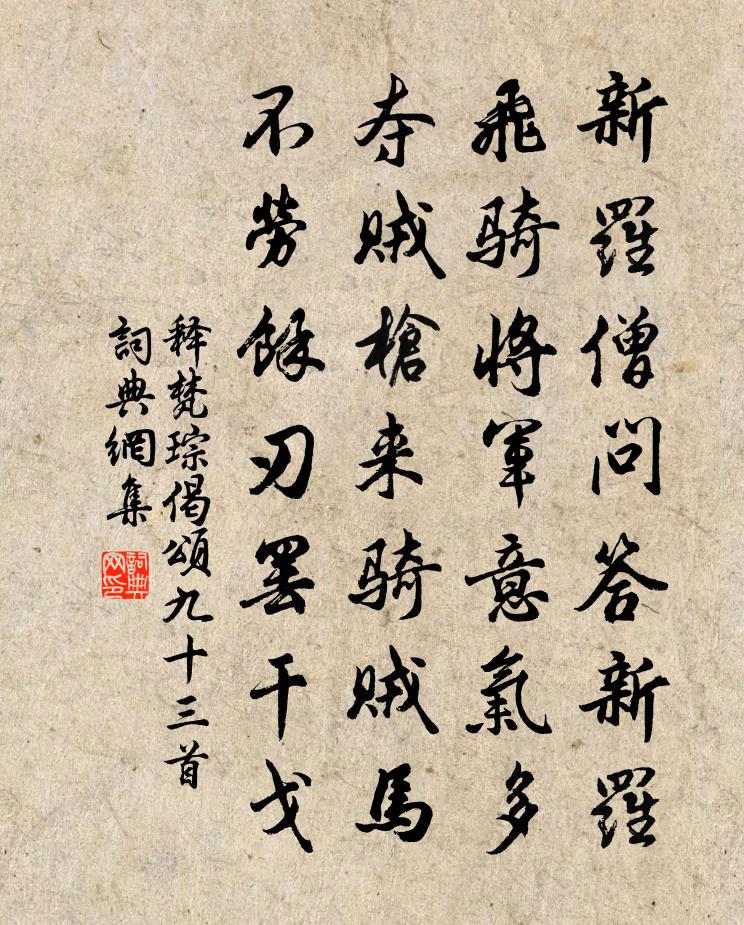 新羅僧問答新羅
飛騎將軍意氣多
夺賊槍来騎賊馬
不勞餘刃罢干戈
释梵琮偈頌九十三首
詞典網集
詞典网印